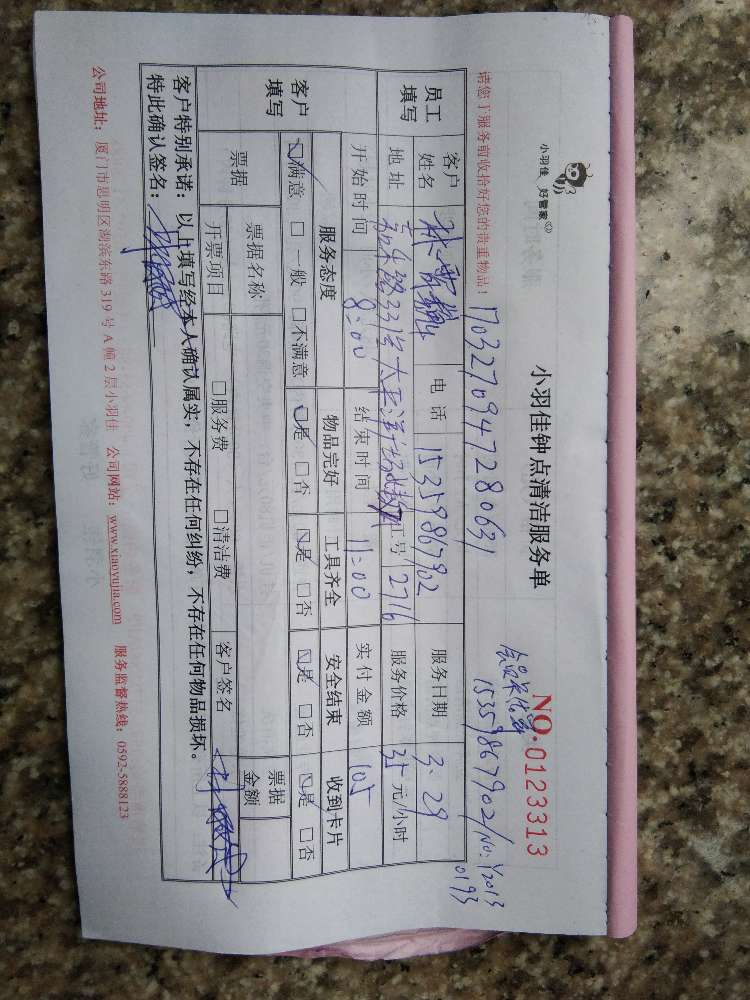 小羽佳 好管家
小羽佳钟点清洁服务单
NO.0123313
15359867902/NO:Y2013
0193
请您于服务前收拾好您的贵重物品！
1703270947280631
员工填写
客户姓名 林 电话 15359867902 服务日期 3.29
地址 33 太平洋 工号 2716 服务价格 35 元/小时
客户填写
开始时间 8:00 结束时间 11:00 实付金额 105
服务态度 物品完好 工具齐全 安全结束 收到卡片
☑满意 □一般 □不满意 ☑是 □否 ☑是 □否 ☑是 □否 ☑是 □否
票据 票据名称 票据金额
开票项目 □服务费 □清洁费 客户签名
客户特别承诺：以上填写经本人确认属实，不存在任何纠纷，不存在任何物品损坏。
特此确认签名：
公司地址：厦门市思明区湖滨东路319号A幢2层小羽佳 公司网站：www.xiaoyujia.com 服务监督热线：0592-5888123